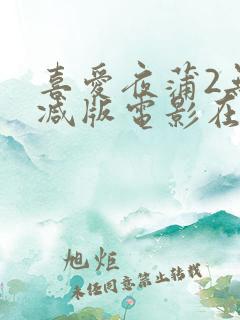 喜愛夜蒲2
减版電影在
旭炬
未经同意禁止转载